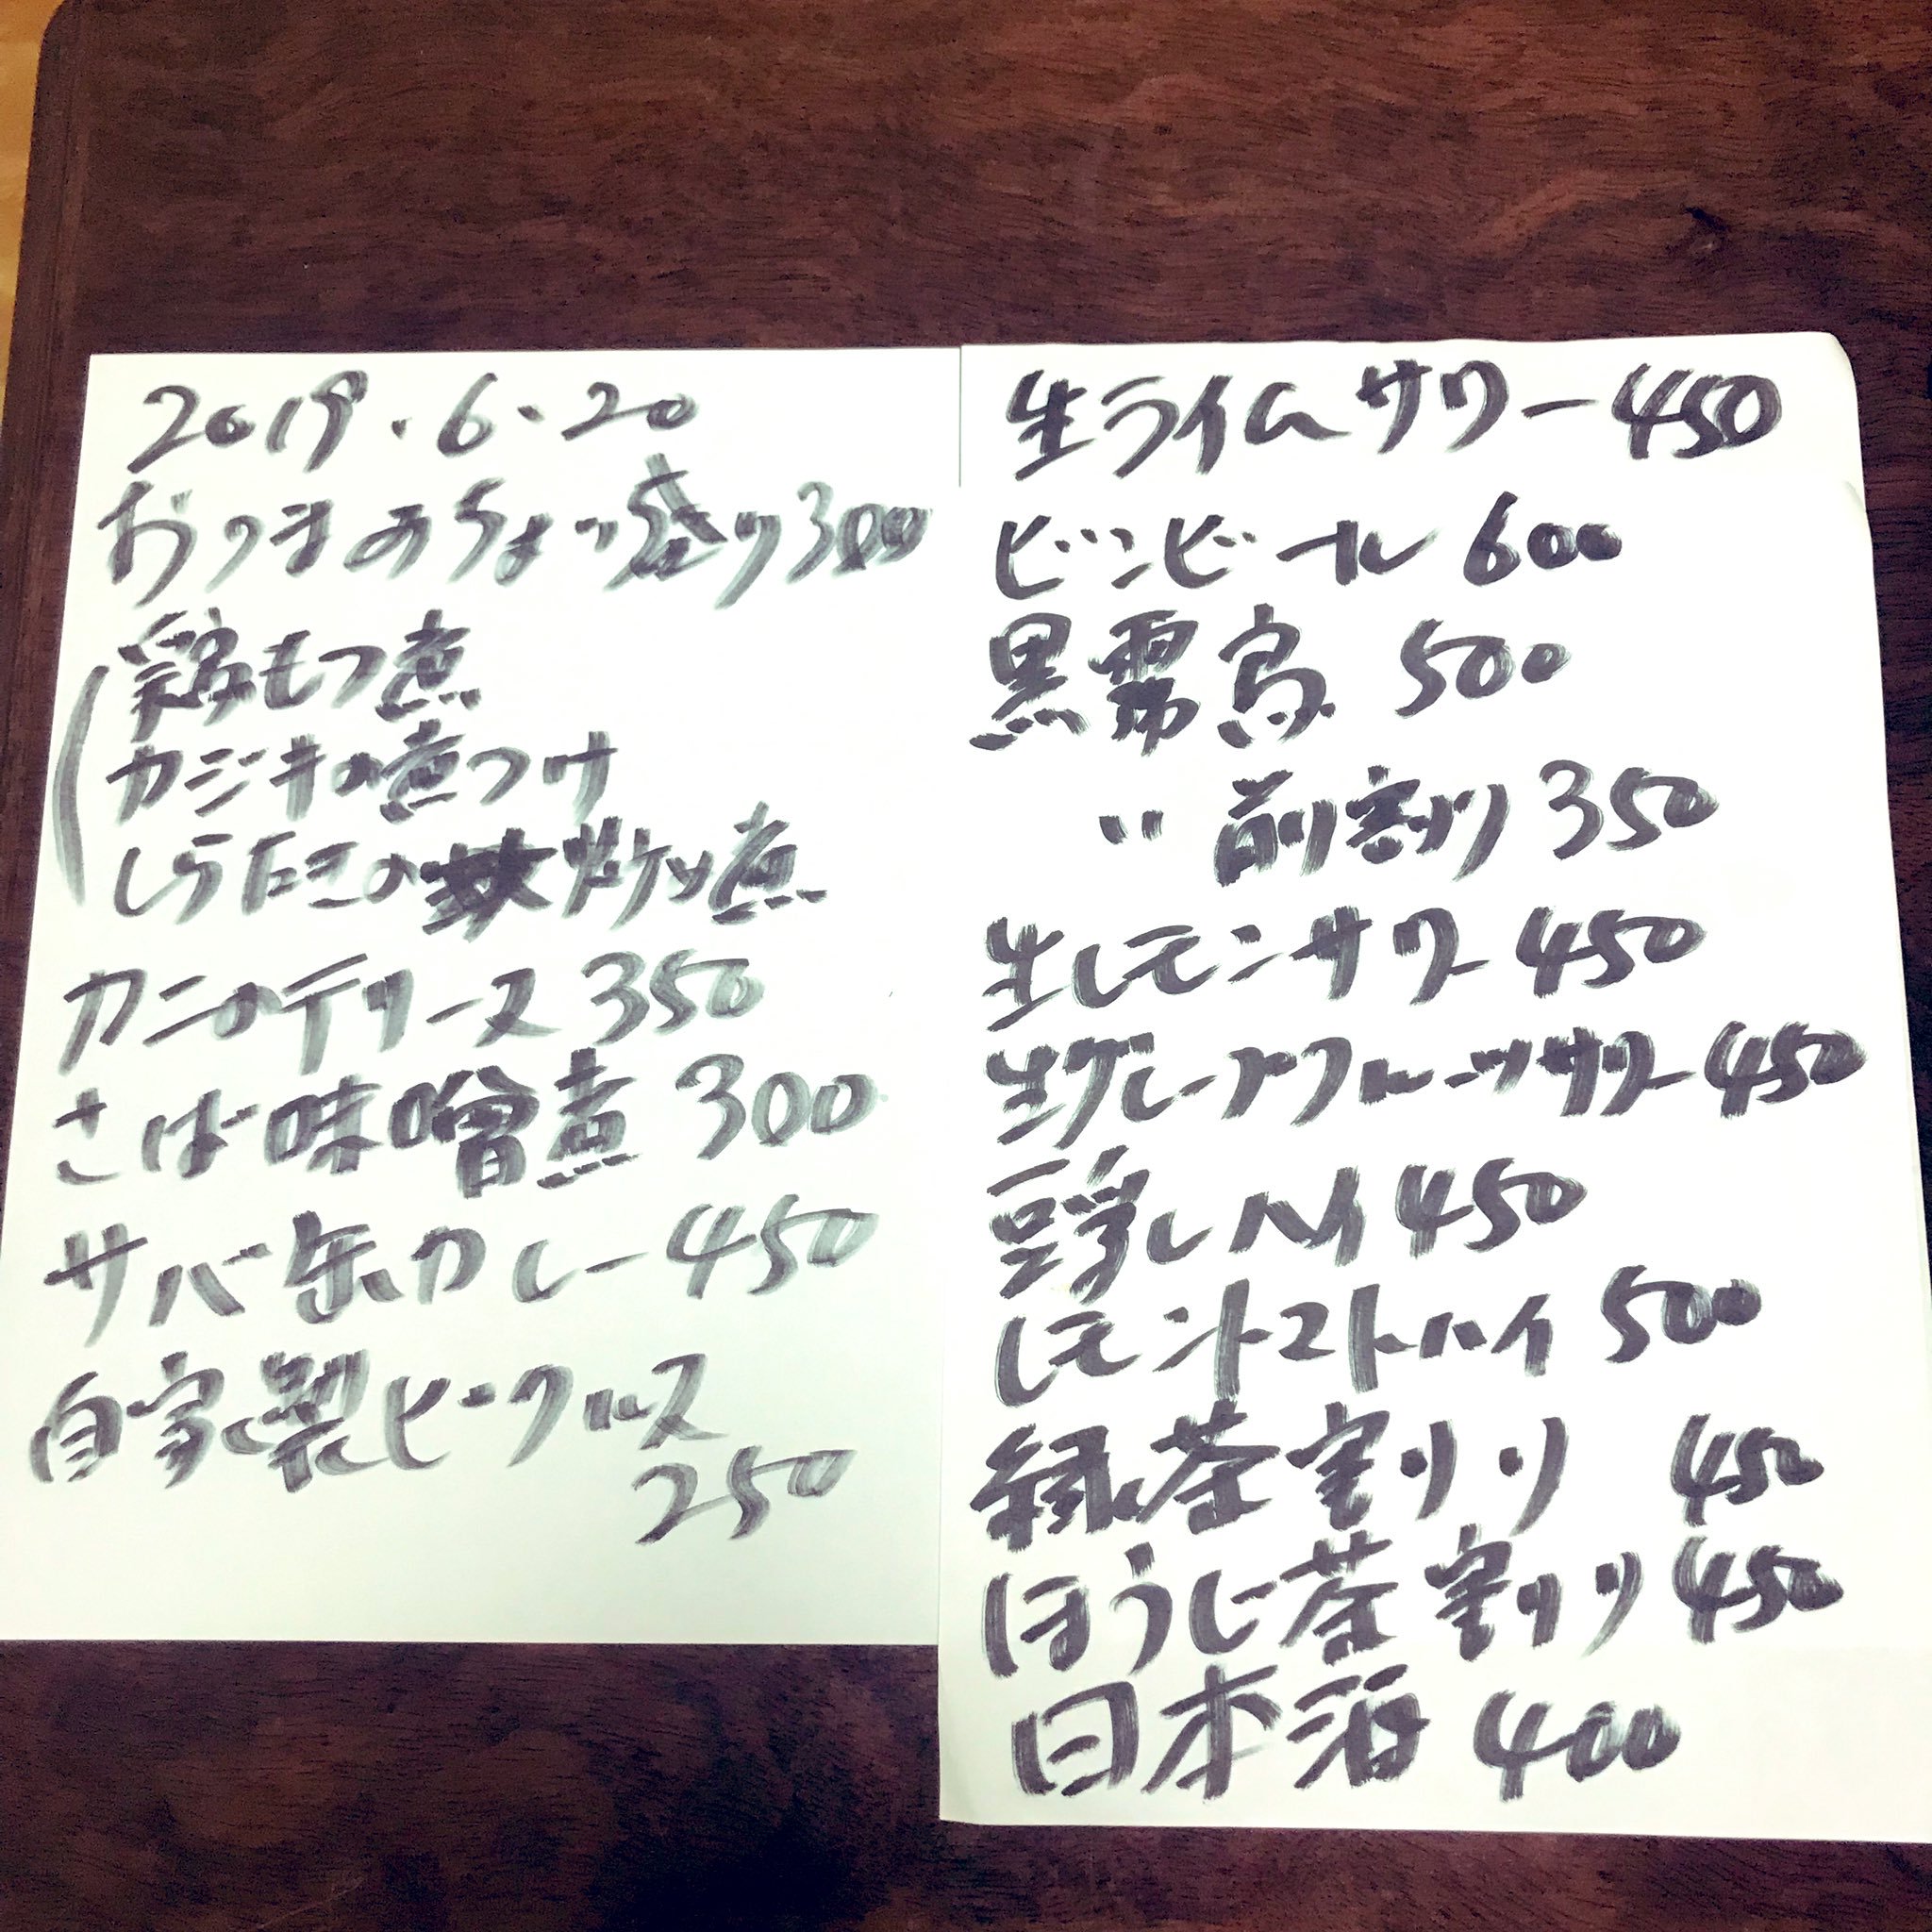 2019.6.20
おつまみちょっ盛り300
鶏もつ煮
カジキの煮つけ
しらたきの炒り煮
カニのテリーヌ 350
さば味噌煮 300
サバ缶カレー 450
自家製ピークルス
250
生ライムサワー 450
ビンビール 600
黒霧島 500
〃 前割り 350
生レモンサワー 450
生グレープフルーツサワー 450
豆乳しハイ 450
レモントマトハイ 500
緑茶割り 450
ほうじ茶割り 450
日本酒 400